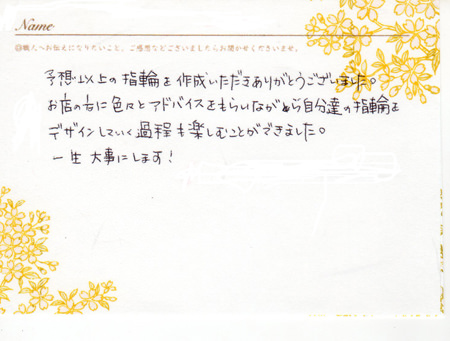 Name
◎職人へお伝えになりたいこと、ご感想などございましたらお聞かせくださいませ。
予想以上の指輪を作成いただきありがとうございました。
お店の方に色々とアドバイスをもらいながら自分達の指輪を
デザインしていく過程も楽しむことができました。
一生大事にします!